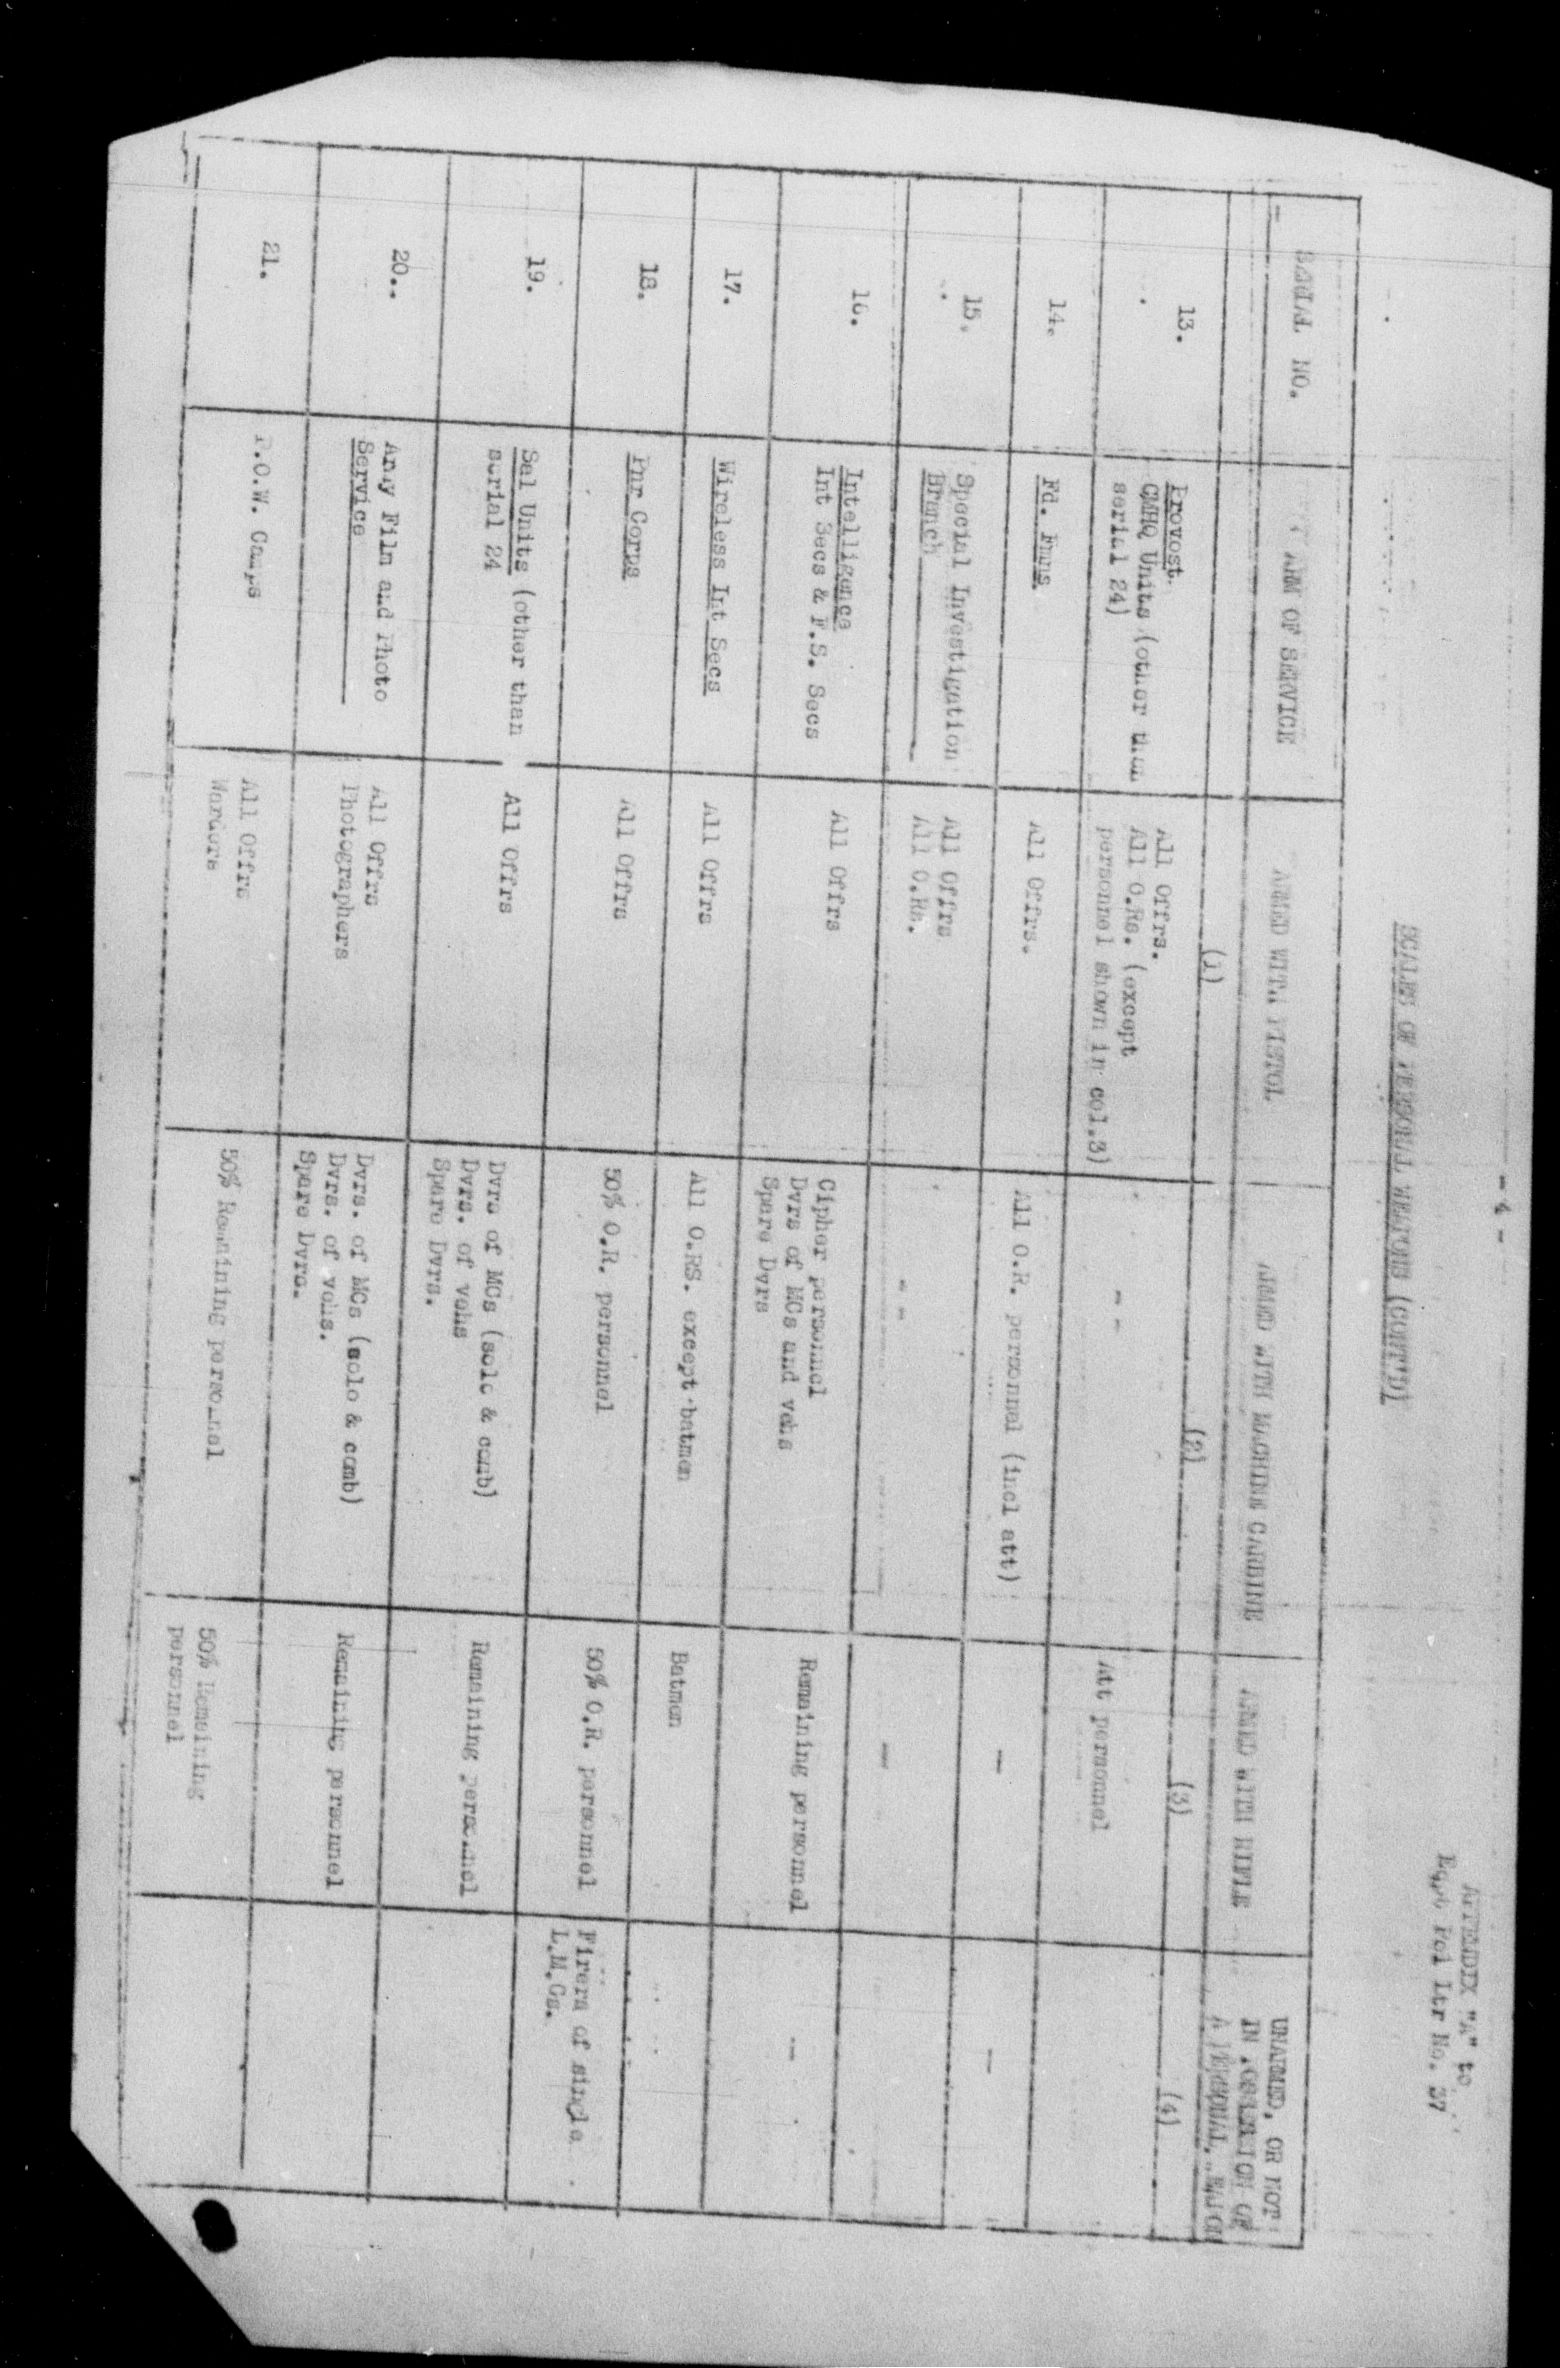 - 4 -
APPENDIX "A" to
Equip Pol Ltr No. 27
SCALES OF PERSONAL WEAPONS (CONT'D)
SERIAL NO.
ARM OF SERVICE
ARMED WITH PISTOL
ARMED WITH MACHINE CARBINE
ARMED WITH RIFLE
UNARMED, OR NOT
IN POSSESSION OF
A PERSONAL WEAPON
(1)
(2)
(3)
(4)
13.
Provost
CMHQ Units (other than
serial 24)
All Offrs.
All O.Rs. (except
personnel shown in col.3)
- -
Att personnel
14.
Fd. Hyg
All Offrs.
All O.R. personnel (incl att)
-
-
15.
Special Investigation
Branch
All Offrs
All O.Rs.
- -
-
16.
Intelligence
Int Secs & F.S. Secs
All Offrs
Cipher personnel
Dvrs of MCs and vehs
Spare Dvrs
Remaining personnel
-
17.
Wireless Int Secs
All Offrs
All O.RS. except batmen
Batmen
18.
Pnr Corps
All Offrs
50% O.R. personnel
50% O.R. personnel
Firers of single
L.M.Gs.
19.
Sal Units (other than
serial 24
All Offrs
Dvrs of MCs (solo & comb)
Dvrs. of vehs
Spare Dvrs.
Remaining personnel
20..
Army Film and Photo
Service
All Offrs
Photographers
Dvrs. of MCs (solo & comb)
Dvrs. of vehs.
Spare Dvrs.
Remaining personnel
21.
P.O.W. Camps
All Offrs
Warders
50% Remaining personnel
50% Remaining
personnel